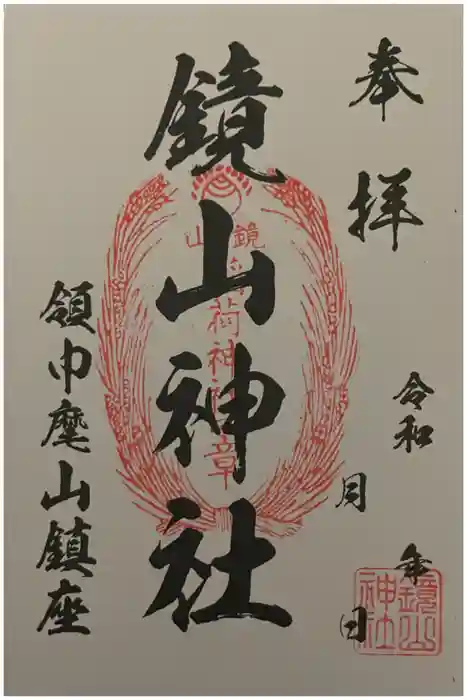 奉拝
令和 年
月 日
鏡山神社
鏡山
稲荷神社章
領巾麾山鎮座
鏡山
神社